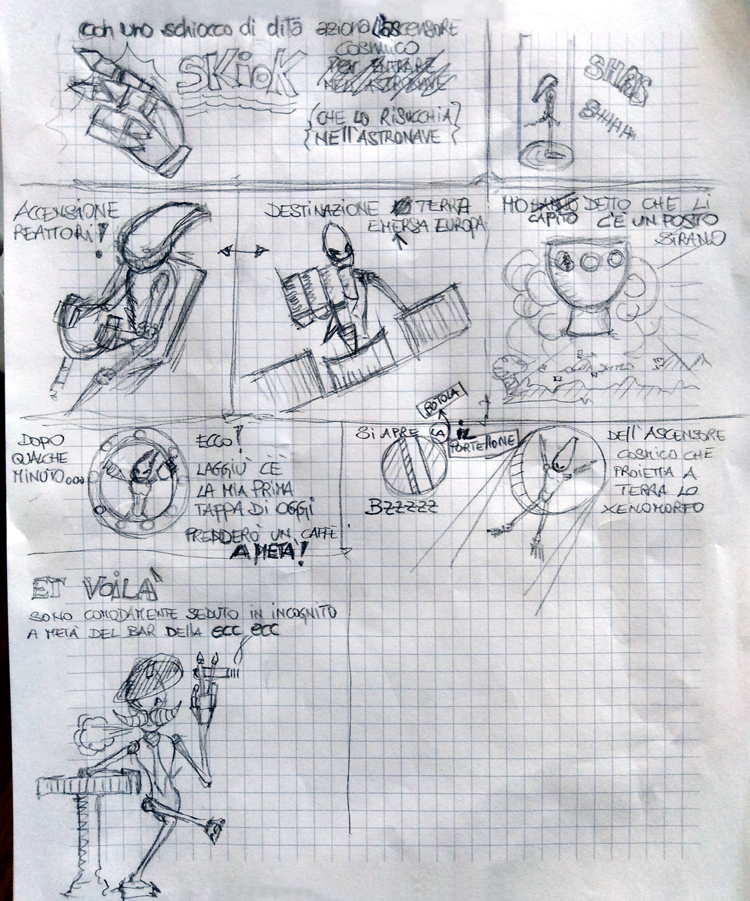 con uno schiocco di dita aziona l'ascensore
cosmico
per entrare
nell'astronave
{che lo risucchia}
{nell'astronave}
SKIOK
ACCENSIONE
REATTORI!
DESTINAZIONE TERRA
EMERSA EUROPA
MO HANNO DETTO CHE LI
CAPITO C'È UN POSTO
STRANO
DOPO
QUALCHE
MINUTO...
ECCO!
LAGGIÙ C'È
LA MIA PRIMA
TAPPA DI OGGI
PRENDERÒ UN CAFFÈ
A METÀ!
SI APRE LA
BOTOLA
IL
PORTELLONE
BZZZZZ
DELL'ASCENSORE
COSMICO CHE
PROIETTA A
TERRA LO
XENOMORFO
ET VOILÀ
SONO COMODAMENTE SEDUTO IN INCOGNITO
A METÀ DEL BAR DELLA ECC ECC